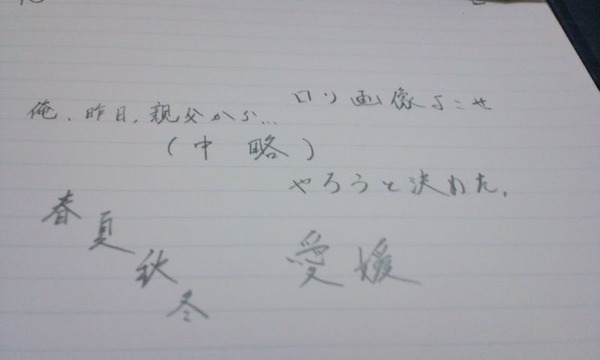 ロリ画像よこせ
俺、昨日、親父から…
(中略)
やろうと決めた。
春夏秋冬
愛媛